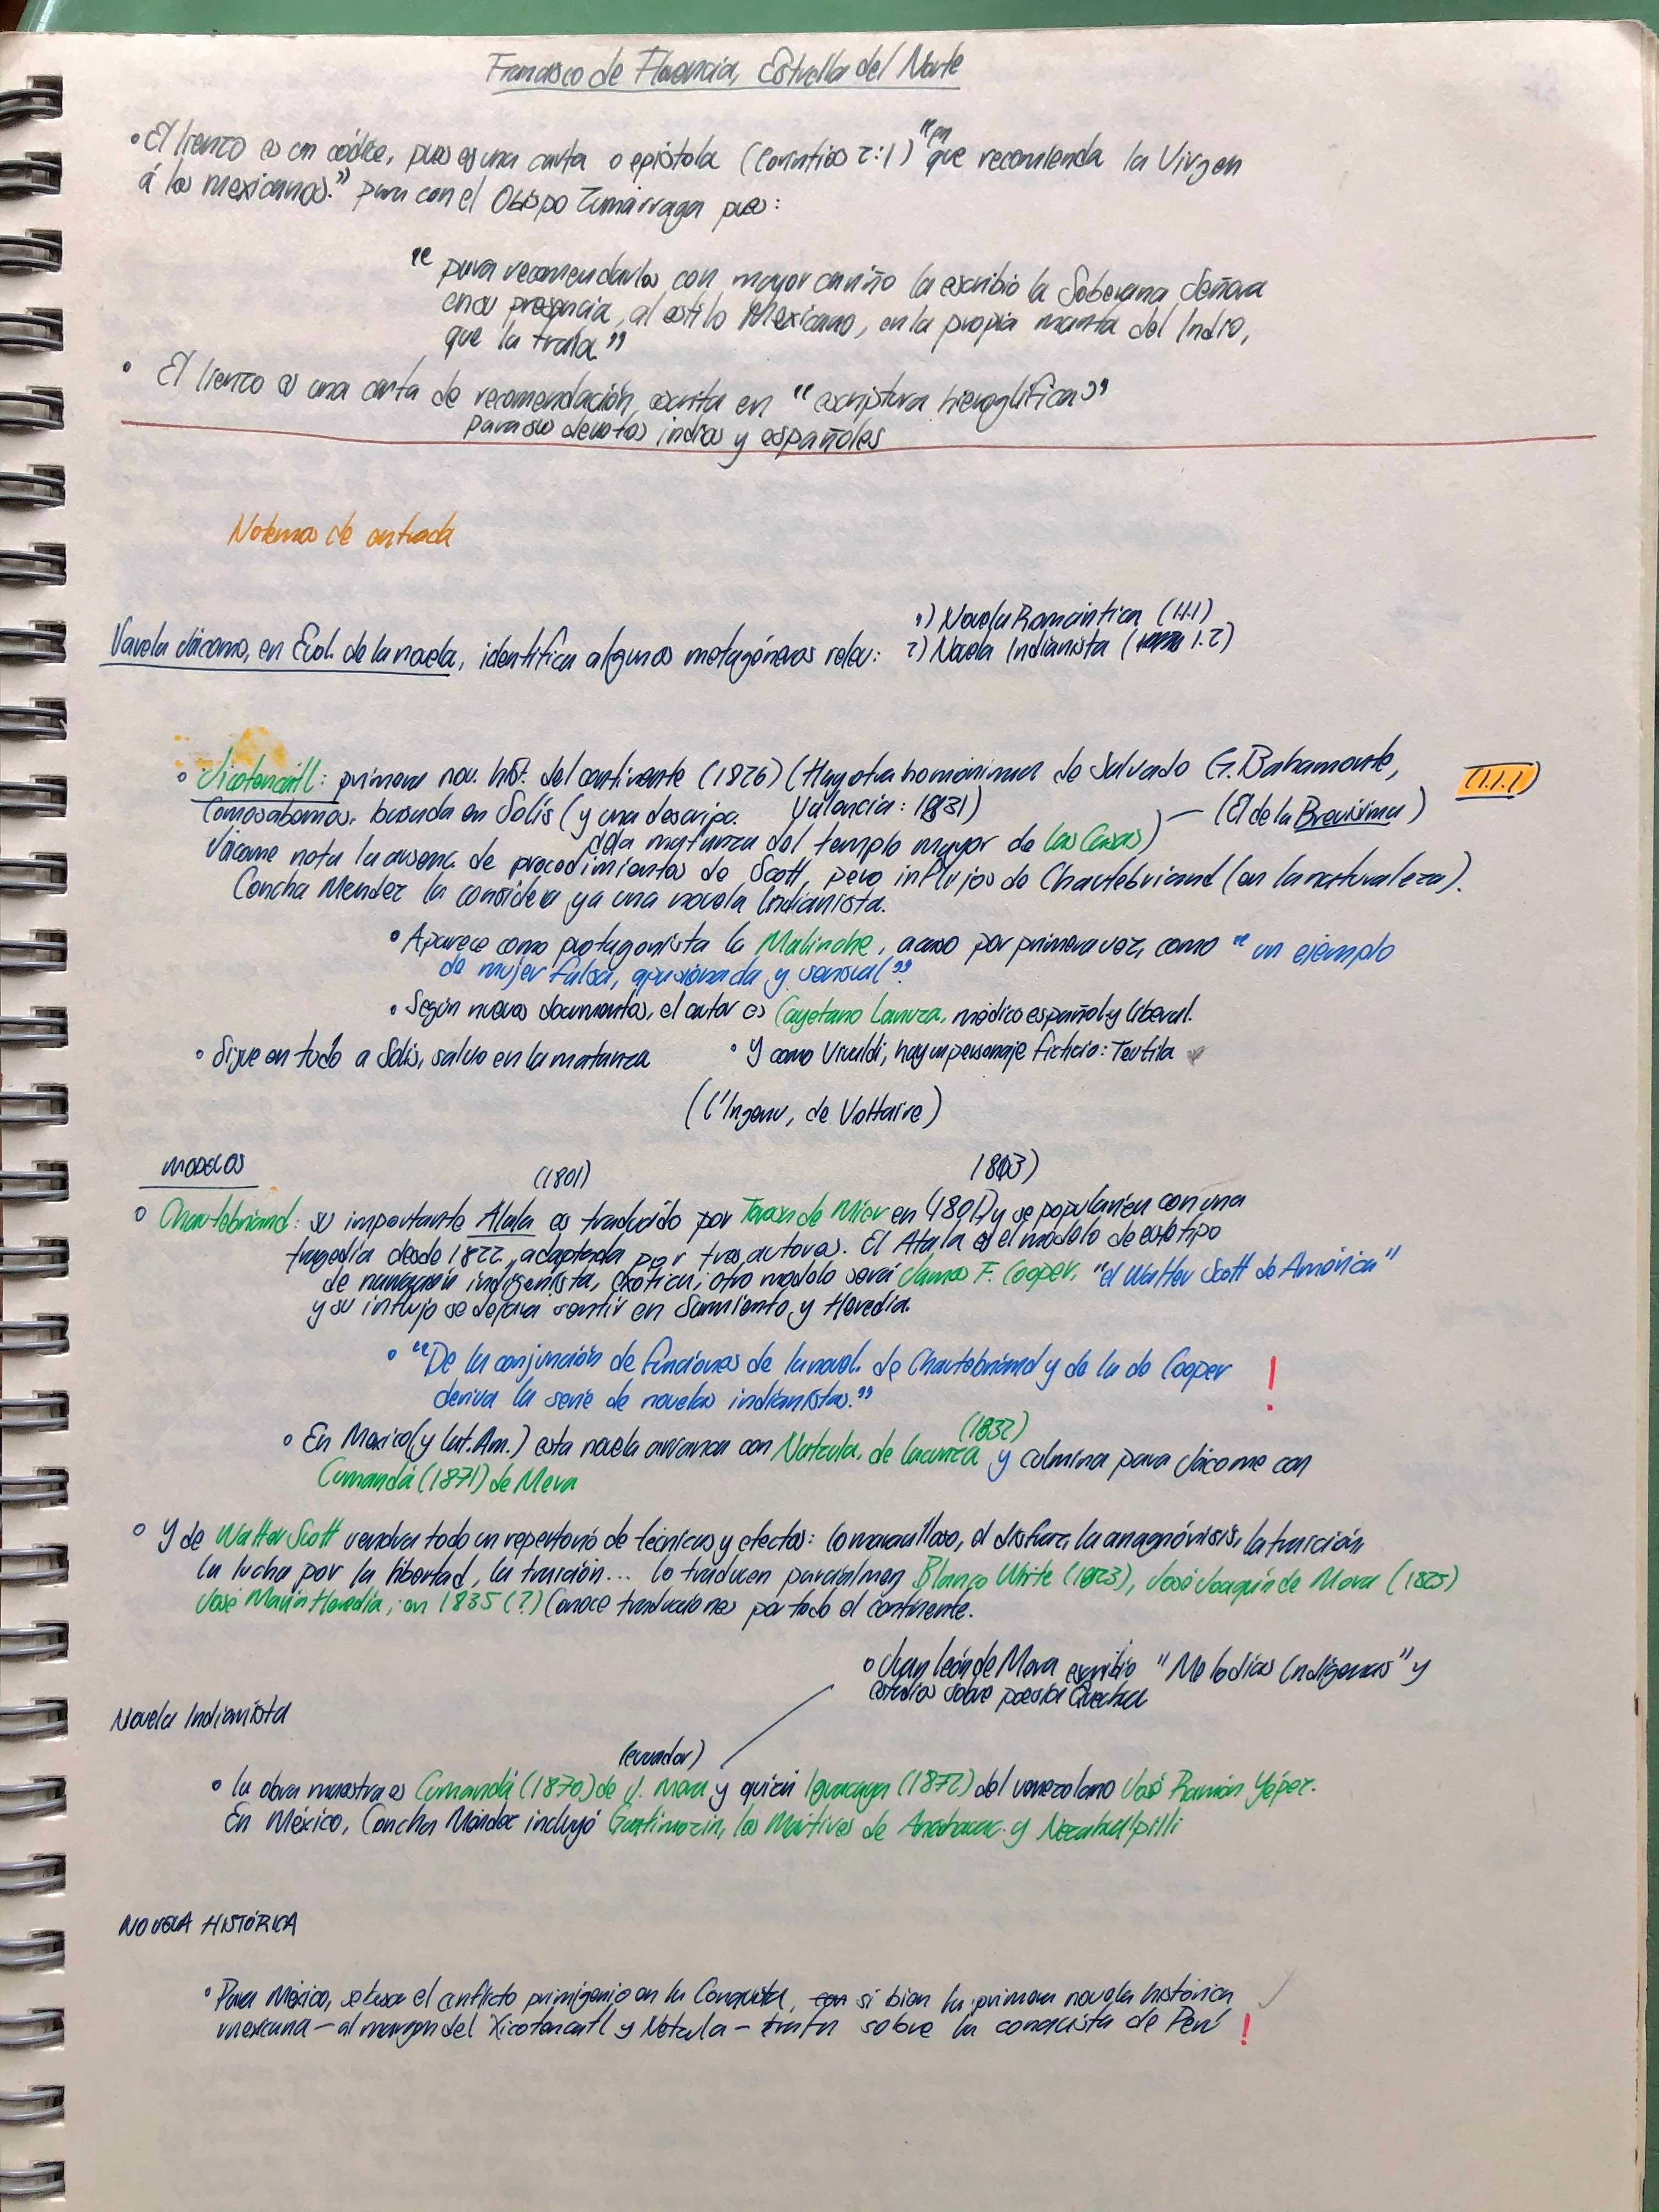 Francisco de Florencia, Estrella del Norte
• El lienzo es un códice, pues es una carta o epístola (Corintios 2:1) "en que recomienda la Virgen
á los mexicanos." para con el Obispo Zumárraga pues:
" para recomendarlos con mayor cariño la escribió la Soberana Señora
en su presencia, al estilo Mexicano, en la propia manta del Indio,
que la traía."
• El lienzo es una carta de recomendación, escrita en "escriptura hieroglífica"
para sus devotos indios y españoles
Notemos de entrada
1) Novela Romántica (1.1)
Varela Jácome, en Evol. de la novela, identifica algunos metagéneros relev: 2) Novela Indianista (1.2)
• Jicotencátl: primera nov. hist. del continente (1826) (Hay otra homónima de Salvado G. Bahamonte,
Valencia: 1831)
(1.1.1)
Como sabemos, basada en Solís (y una descripc.
de la matanza del templo mayor de Las Casas) — (El de la Brevísima)
Jácome nota la ausenc. de procedimientos de Scott, pero influjos de Chautebriand (en la naturaleza).
Concha Mendez la considera ya una novela Indianista.
• Aparece como protagonista la Malinche, acaso por primera vez, como " un ejemplo
de mujer falsa, apasionada y sensual"
• Según nuevos documentos, el autor es Cayetano Lanuza, médico español y liberal.
• Sigue en todo a Solís, salvo en la matanza • Y como Vivaldi, hay un personaje ficticio: Teutila
(L'Ingenu, de Voltaire)
MODELOS
(1801) 1803)
◦ Chautebriand: su importante Atala es traducido por Teresa de Mier en (1801) y se populariza con una
tragedia desde 1822, adaptada por tres autores. El Atala es el modelo de este tipo
de narración indigenista, exótica; otro modelo será James F. Cooper, "el Walter Scott de América"
y su influjo se dejará sentir en Sarmiento y Heredia.
◦ "De la conjunción de funciones de la novel. de Chautebriand y de la de Cooper !
deriva la serie de novelas indianistas."
(1832)
◦ En México (y Lat. Am.) esta novela arranca con Netzula, de Lacunza y culmina para Jácome con
Cumandá (1871) de Mera
◦ Y de Walter Scott vendrá todo un repertorio de técnicas y efectos: lo maravilloso, el disfraz, la anagnórisis, la traición
la lucha por la libertad, la traición... lo traducen parcialmen Blanco White (1823), José Joaquín de Mora (1825)
José María Heredia, en 1835 (?) Conoce traducciones por todo el continente.
◦ Juan León de Mera escribió "Melodías Indígenas" y
estudios sobre poesía Quechua
Novela Indianista
(ecuador)
• La obra maestra es Cumandá (1870) de J. Mera y quizá Iguaraya (1872) del venezolano José Ramón Yépez.
En México, Concha Méndez incluyó Guatimozin, los Mártires de Anahuac y Nezahualpilli
NOVELA HISTÓRICA
• Para México, se busca el conflicto primigenio en la Conquista, si bien la primera novela histórica
mexicana — al margen del Xicotencatl y Netzula — trata sobre la conquista de Perú !